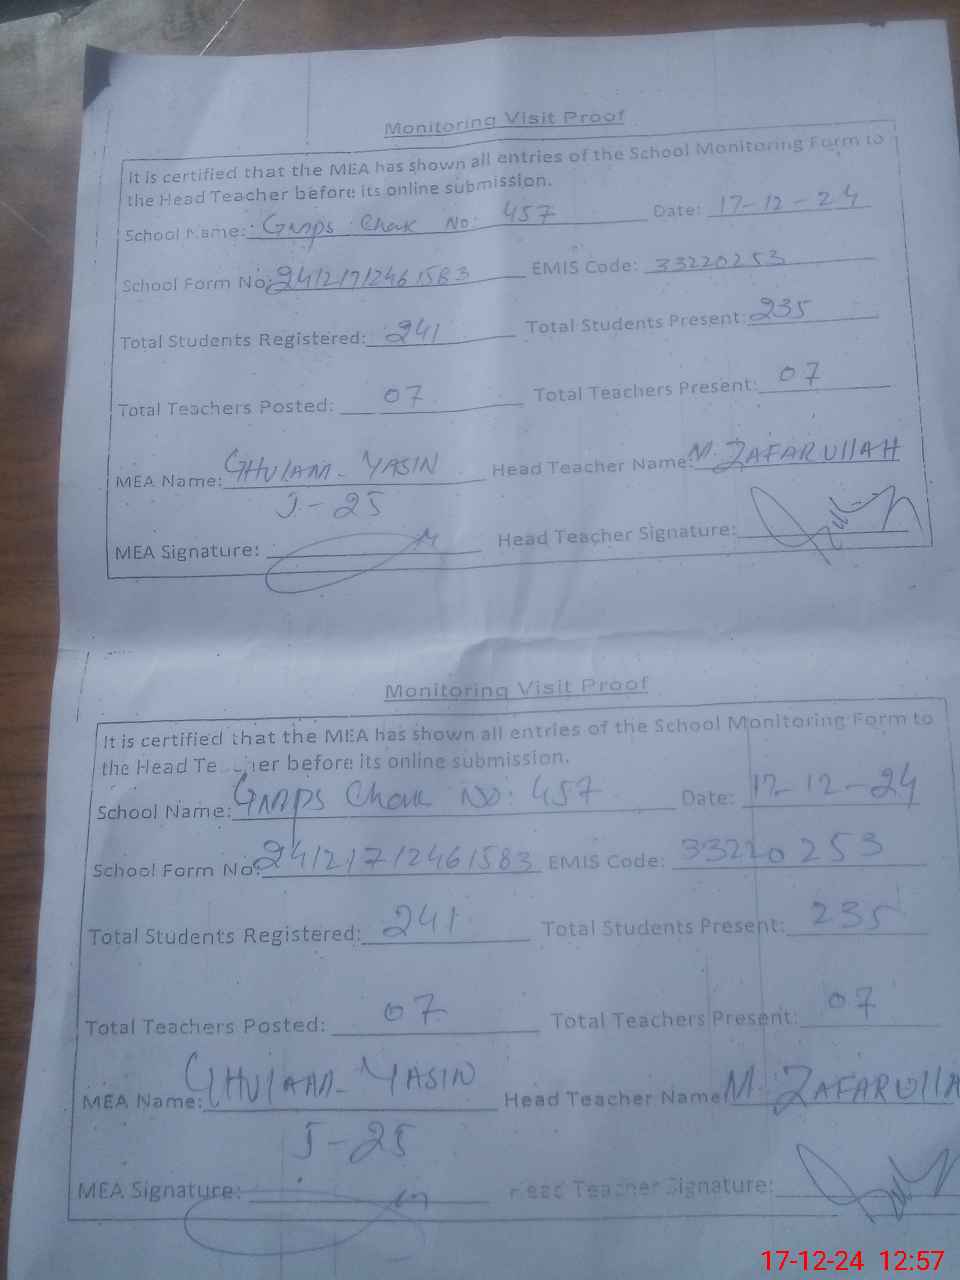 Monitoring Visit Proof
It is certified that the MEA has shown all entries of the School Monitoring Form to
the Head Teacher before its online submission.
School Name: GMPS Chak No: 457 Date: 17-12-24
School Form No: 24121712461583 EMIS Code: 33220253
Total Students Registered: 241 Total Students Present: 235
Total Teachers Posted: 07 Total Teachers Present: 07
MEA Name: GHULAM-YASIN Head Teacher Name: M. ZAFARULLAH
J-25
MEA Signature: Head Teacher Signature:
Monitoring Visit Proof
It is certified that the MEA has shown all entries of the School Monitoring Form to
the Head Teacher before its online submission.
School Name: GMPS Chak No: 457 Date: 17-12-24
School Form No: 24121712461583 EMIS Code: 33220253
Total Students Registered: 241 Total Students Present: 235
Total Teachers Posted: 07 Total Teachers Present: 07
MEA Name: GHULAM-YASIN Head Teacher Name M. ZAFARULLA
J-25
MEA Signature: Head Teacher Signature:
17-12-24 12:57